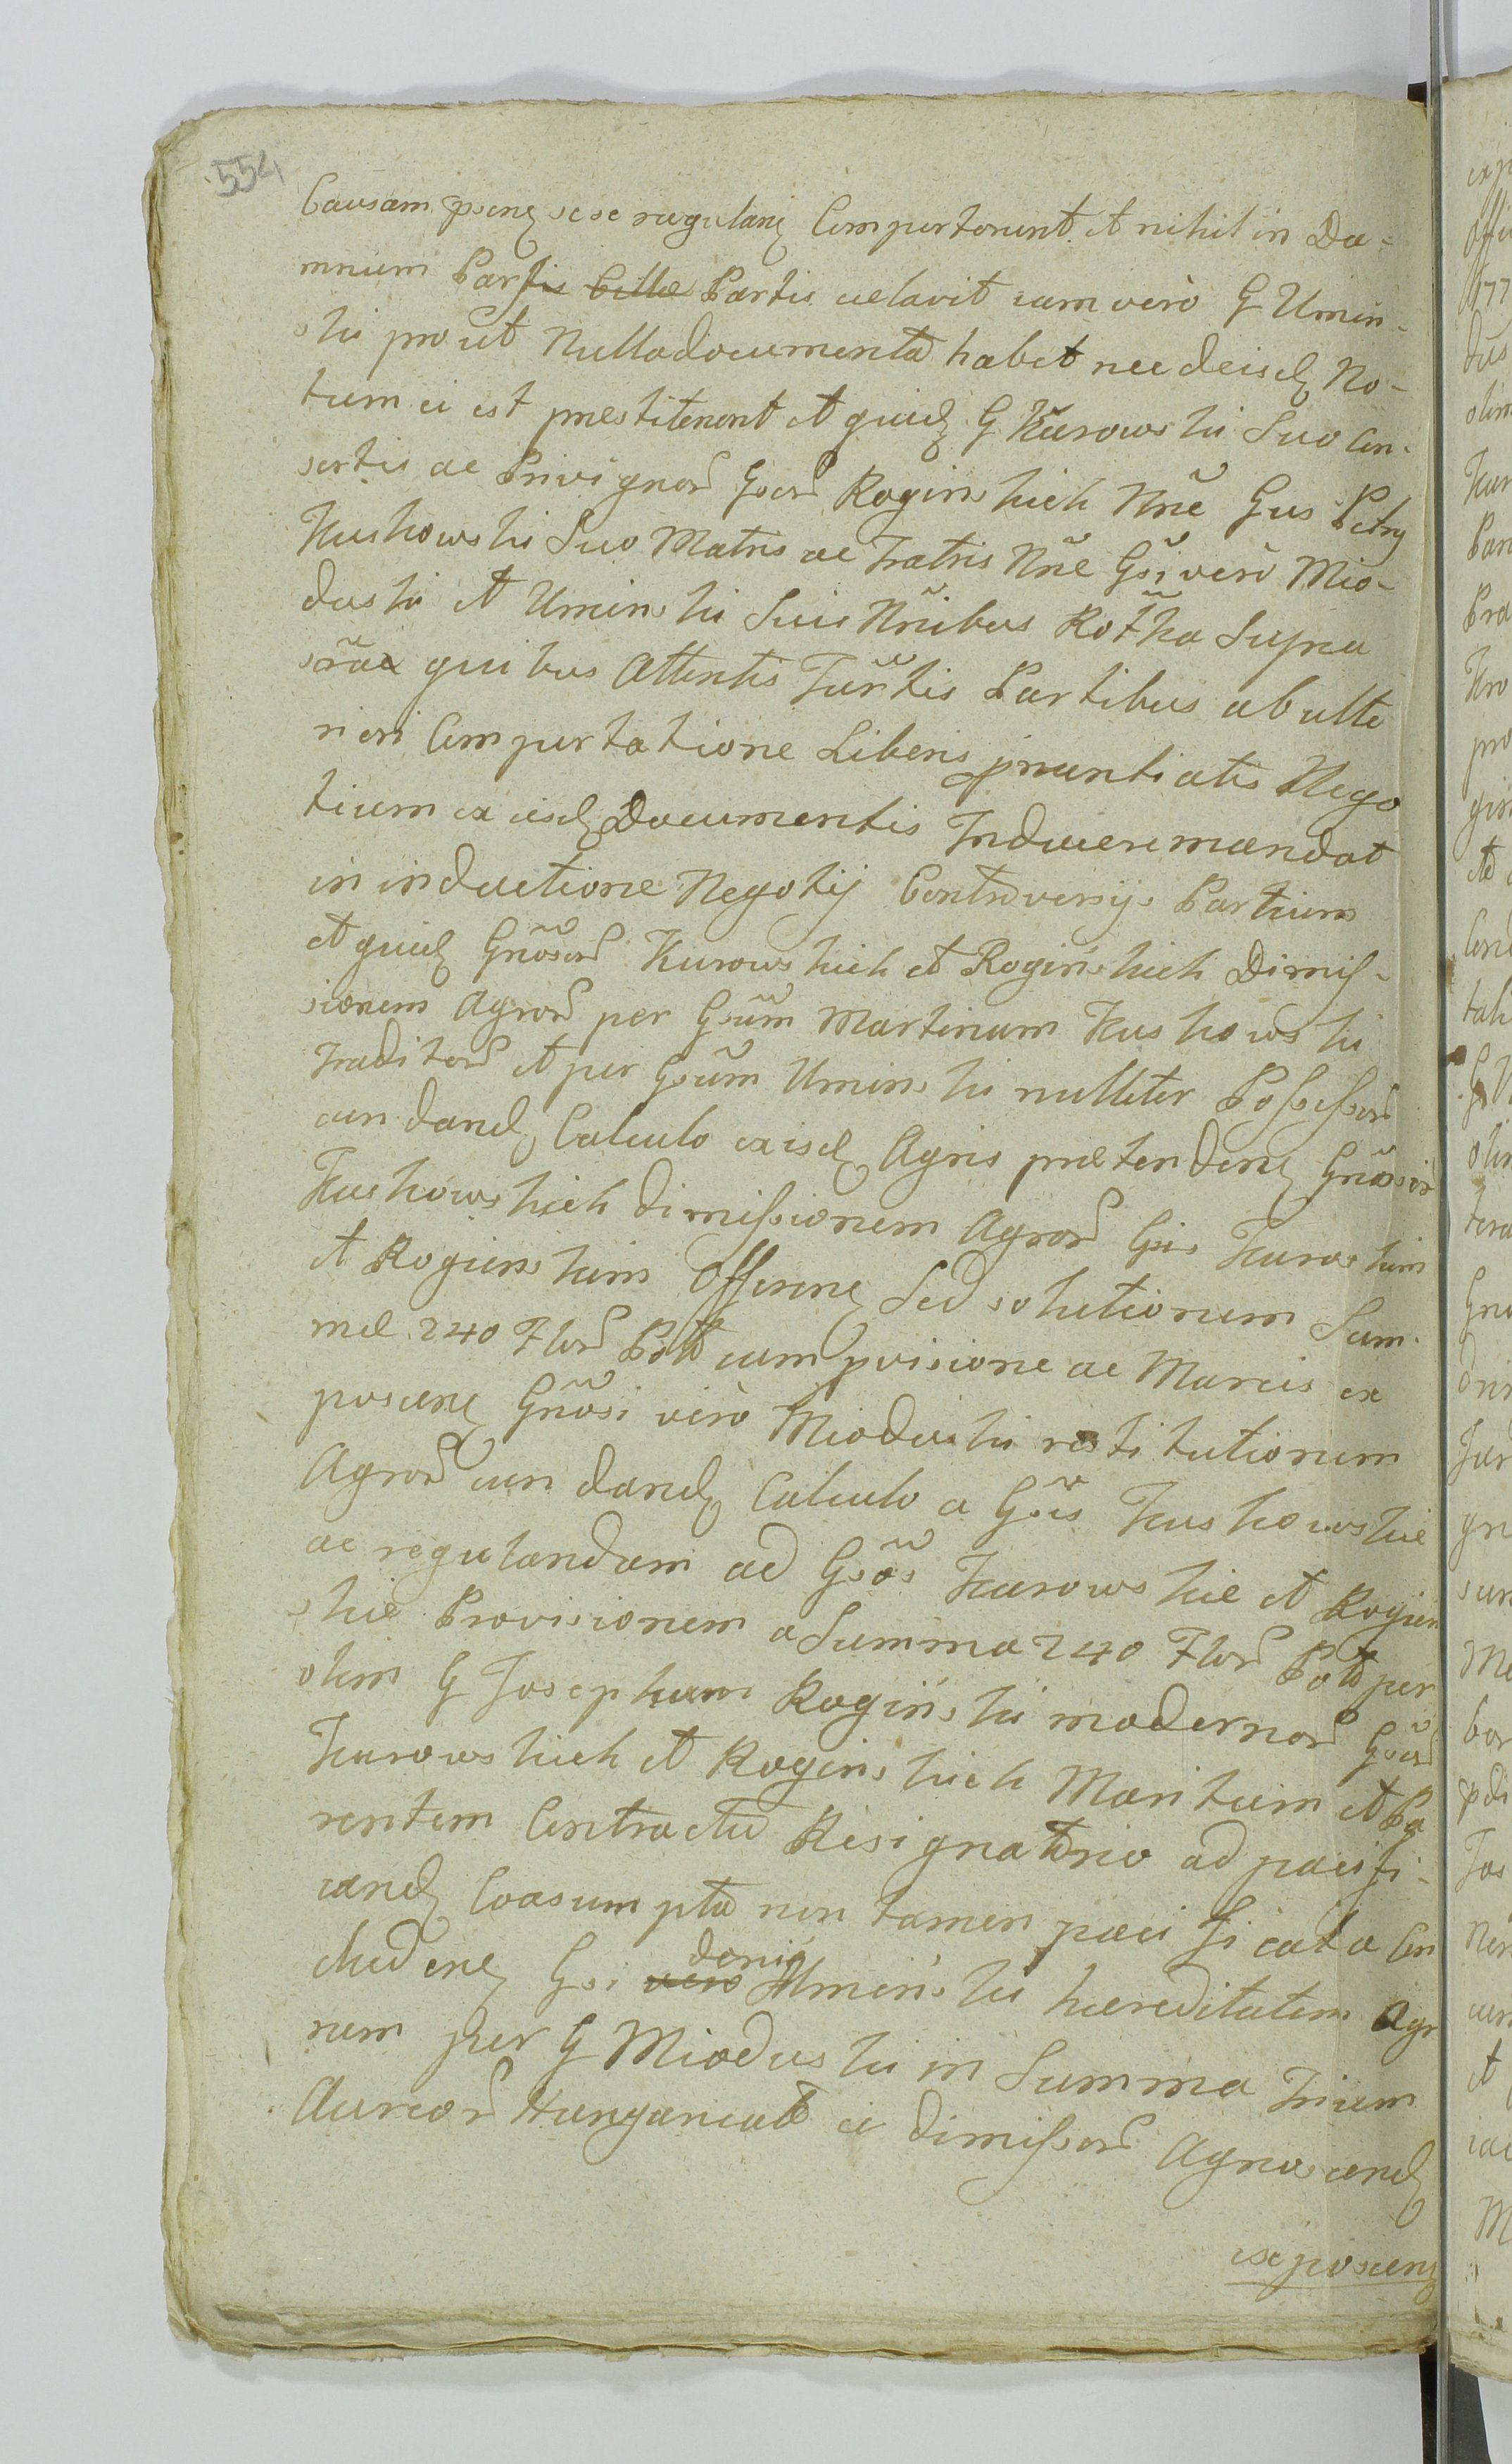 554
Causam pseneq sese regulariq Comportarunt et nihil in Da-
mnum Partis Cellæ Partis celavit iam verò G Umin-
ski prout Nulla documenta habet nec deisdq No-
tum ei est præstiterunt et quidq G Kurowski Suo Con-
sortis ac Privignor Gsor Roginskich Nrie Gus Petry
Kuskowski Suo Matris ac Fratris Nrie Gsi verò Mio-
duski et Uminski Suis Nribus Rottha Supra
srãæ quibus Attentis Jurtis Partibus ab ulte
riori Comportatione Liberis pnuntiatis Nego
tium ex eisdq Documentis Inducere mandat
in inductione Negotij Controversijs Partium
et quidq Gnosor Kurowskich et Roginskich Dimis-
sionem Agror per Gsum Martinum Kuskowski
Traditor et per Gsum Uminski nulliter Possessor
cun dandq Calculo ex isdq Agris prætendenq Gnosor
Kuskowskich dimissionem Agror Gsis Kurowskim
et Rogienskim Offerenq Sed solutionem Sum-
mæ 240 Flor Poll cum pvisione ac Marcis ex
poscenq Gnosi verò Mioduski restitutionem
Agror cun dandq Calculo a Gsis Kuskowskie
ac regulandam ad Gsos Kurowskie et Rogien
skie Provisionem a Summa 240 Flor Poll per
olim G Josephum Roginski modernor Gsor
Kurowskich et Roginskich Maritum et Pa
rentem Contractu Resignatorio ad pacifi-
candq Coasumpta non tamen pacificata Con
cludenq Gsi vero deniq Uminski hæreditatem Agr
rum per G Mioduski in Summa Trium
Aureor Hungaricalt ei dimissor Agnoscendq
exposcenq